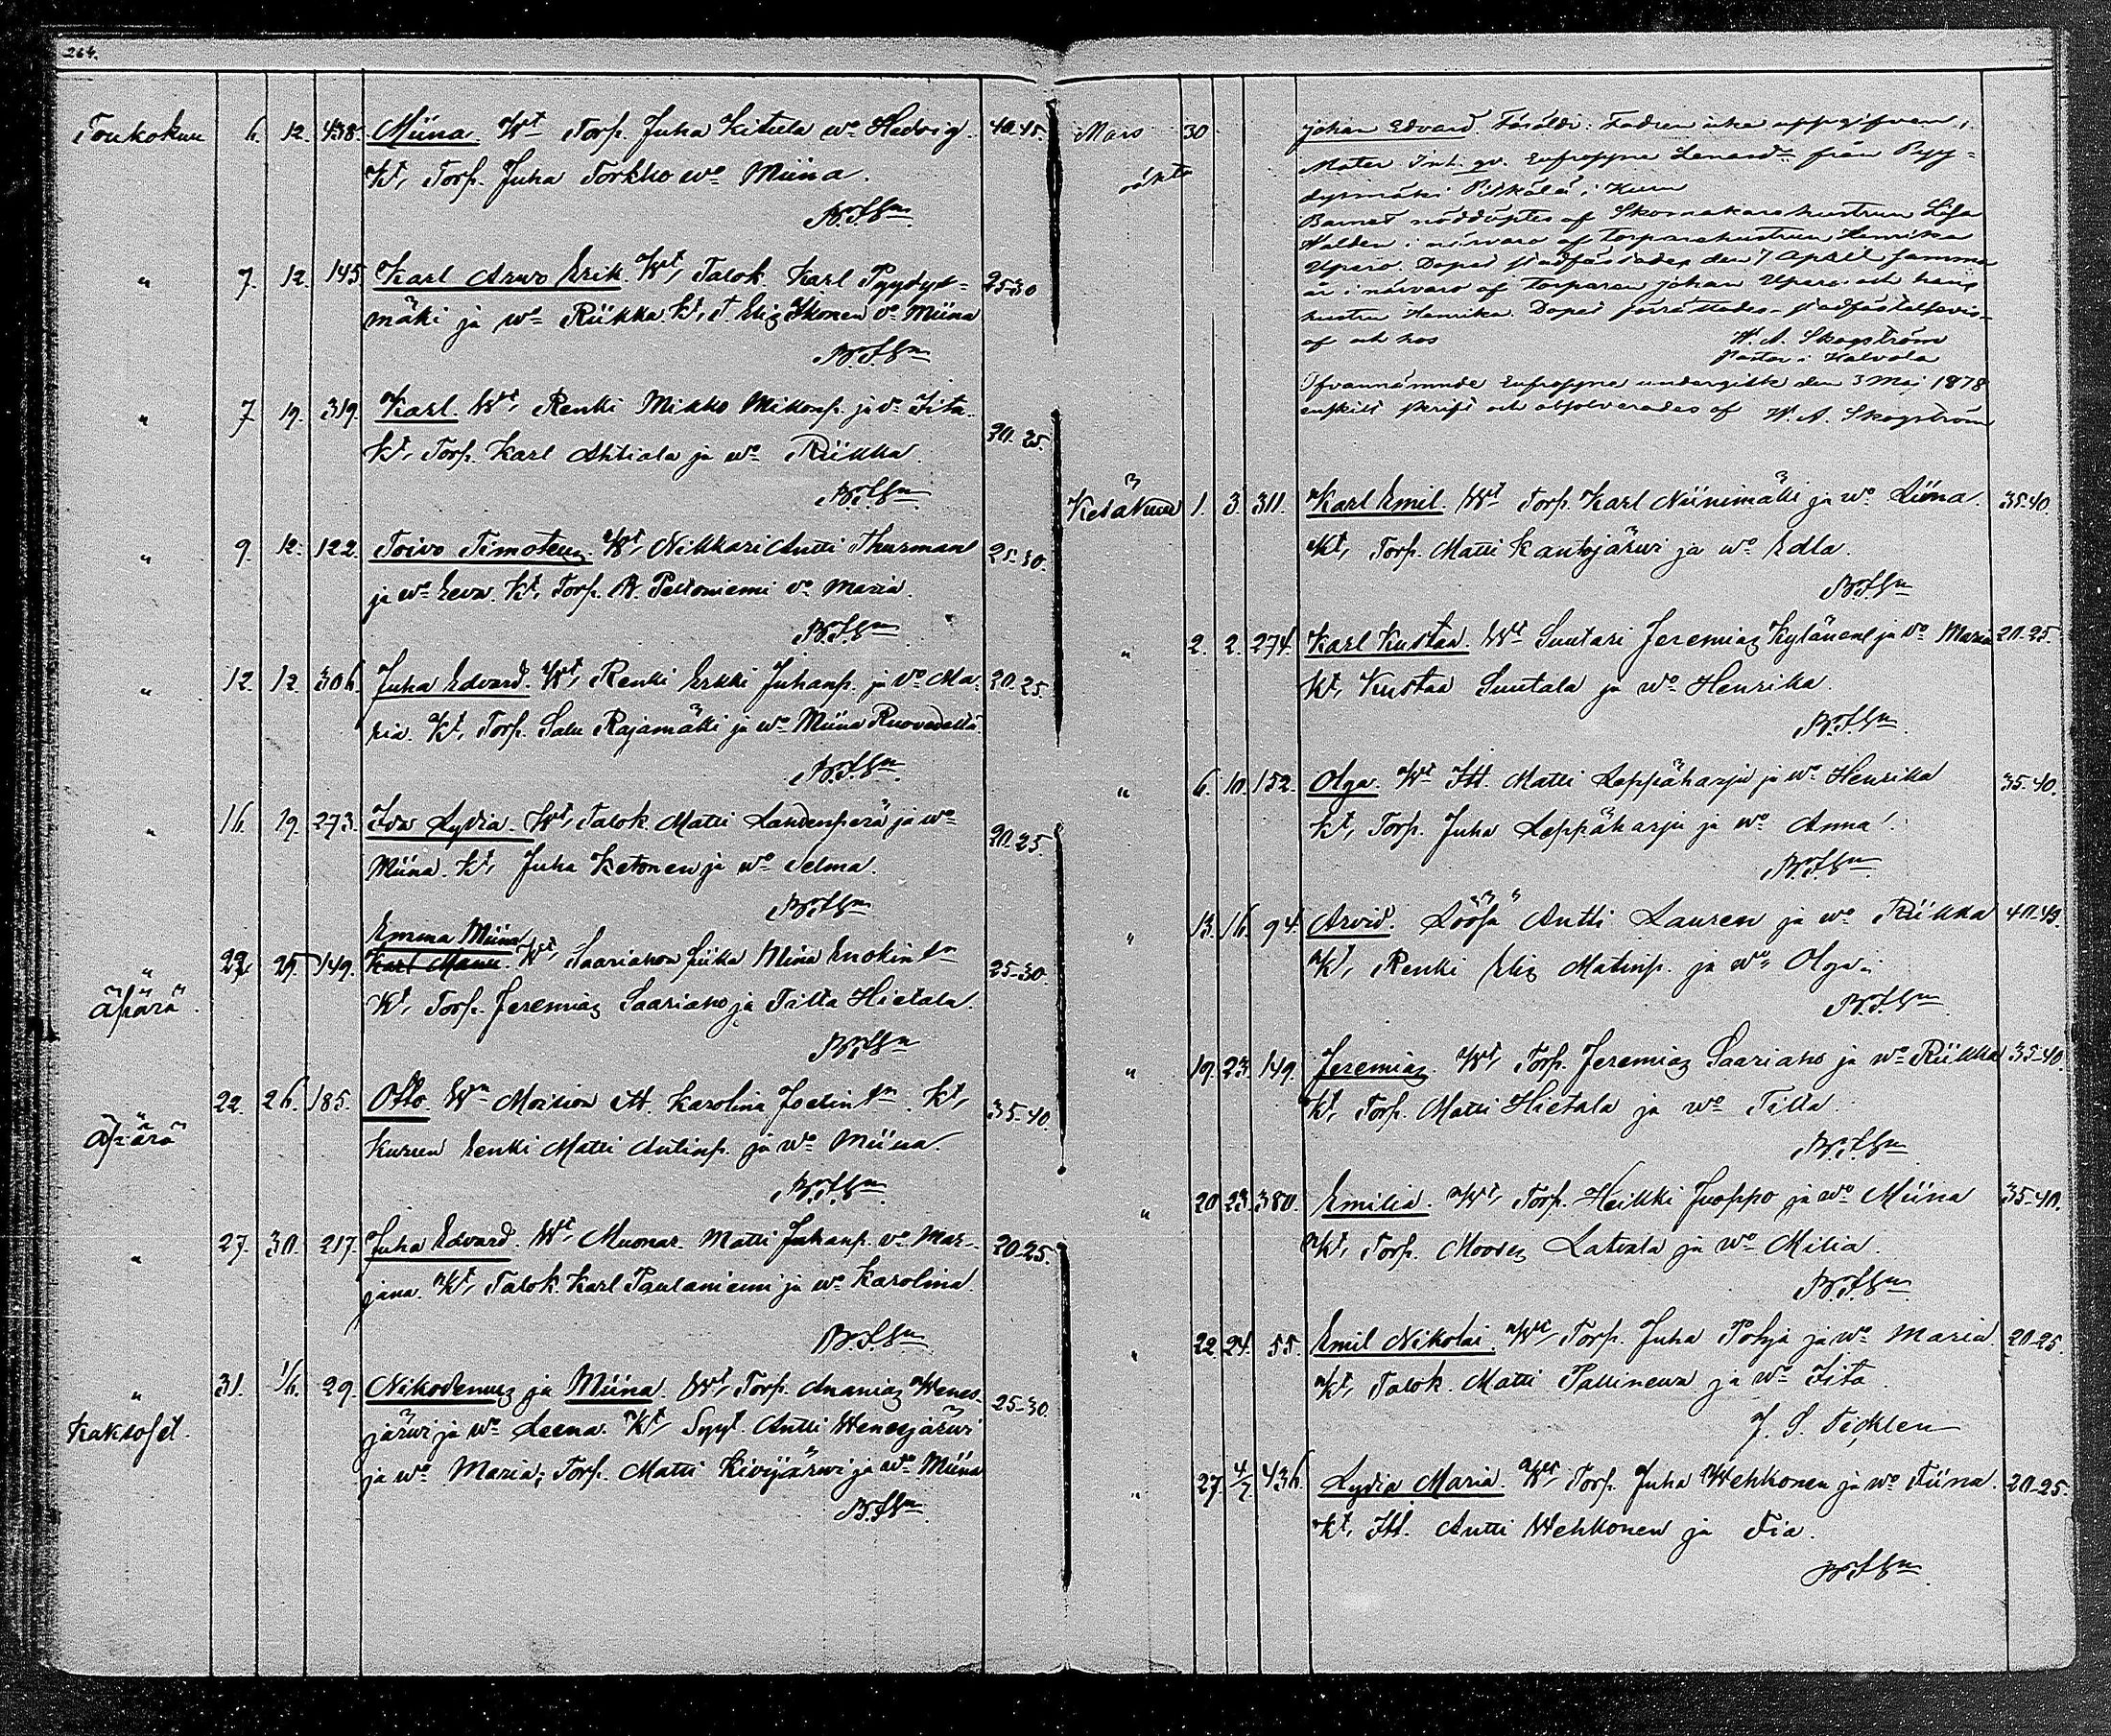 264.
Toukokuu 6. 12. 438. Miina. Wt Torp. Juha Kitula wo Hedvig. 40-45.
Kt, Torp. Juha Torkko wo Miina.
" 7. 12. 145 Karl Arwo Erik. Wt, Talok. Karl Pyydys- 25-30
mäki ja wo Riikka. Kt, T. Elig Ikonen vo Miina
" 7 19. 319. Karl. Wt, Renki Mikko Mikonp. ja vo Fita.
Kt, Torp. Karl Ahtiala ja wo Riikka. 30-35.
" 9. 12. 122. Toivo Timoteus. Wt, Nikkari Antti Thurman 25-30.
ja wo Eeva. Kt, Torp. A. Peltoniemi vo Maria.
" 12. 12. 306. Juha Edvard. Wt, Renki Erkki Juhanp. ja vo Ma- 20-25.
ria. Kt, Torp. Salu Rajamäki ja wo Miina Ruovedeltä.
" 16. 19. 273. Ida Lydia. Wt, Talok. Matti Lahdenperä ja wo
Miina. Kt, Juha Ketonen ja wo Selma. 20-25.
Emma Miina
" 22. 29. 149. Karl Manu. Wt, Saariahon piika Miina Enokin tr 25-30.
Äpärä. Kt, Torp. Jeremias Saariaho ja Tilta Hietala.
22. 26. 185. Otto. Moision Karolina Joelin tr. Kt, 35-40.
Äpärä Kurun renki Matti Antinp. ja wo Miina.
" 27. 30. 217. Juha Edvard. Wt, Muonar. Matti Juhanp. vo Mar- 20-25.
jana. Kt, Talok. Karl Paulaniemi ja wo Karolina.
" 31. 1/6. 29. Nikodemus ja Miina. Wt, Torp. Ananias Wenes- 25-30.
Kaksoset. järwi ja wo Leena. Kt, Syyt. Antti Wenesjärwi
ja wo Maria; Torp. Matti Kivijärwi ja wo Miina
Mars 30 Johan Edvard. Föräldr: Fadren icke uppgifven,
oäkta Moder Inh. qv. Eufrosyne Lenard från Pyy-
dysmäki Pitkälä i Kuru
Barnet nöddöptes af Skomakarehustrun Lisa
Walden i närvaro af Torparehustrun Henrika
Uparo. Dopet stadfästades den 7 April samma
år i närvaro af Torparen Johan Uparo och hans
hustru Henrika. Dopet förrättades
af och hos W. A. Skogström
Pastor i Kalvola
Ofvannämnde Eufrosyne undergick den 3 Maj 1878
enskilt skrift och absolverades af W. A. Skogström
Kesäkuu 1. 3 311. Karl Emil. Wt Torp. Karl Niinimäki ja wo Liina. 35-40.
Kt, Torp. Matti Kantojärwi ja wo Edla.
" 2. 2. 274. Karl Kustaa. Wt Suutari Jeremias Kylänen ja vo Maria 20-25.
Kt, Kustaa Suutala ja wo Henrika.
" 6. 10. 152. Olga. Wt Itt. Matti Leppäharju ja wo Henrika 35-40.
Kt, Torp. Juha Leppäharju ja wo Anna.
" 13. 16. 94. Arvid. Antti Lauren ja wo Riikka 40-45.
Kt, Renki Elis Matinp. ja wo Olga.
" 19. 23. 149. Jeremias. Wt, Torp. Jeremias Saariaho ja wo Riikka 35-40.
Kt, Torp. Matti Hietala ja wo Tilta.
" 20 23. 380. Emilia. Wt, Torp. Heikki Juoppo ja wo Miina 35-40.
Kt, Torp. Mooses Latvala ja wo Milia.
" 22. 24. 55. Emil Nikolai. Wt, Torp. Juha Pohja ja wo Maria. 20-25.
Kt, Talok. Matti Pallinen ja wo Fita.
" 27. 4/7. 436. Lydia Maria. Wt, Torp. Juha Wehkonen ja wo Fiina. 20-25.
Kt, Itt. Antti Wehkonen ja Fia.